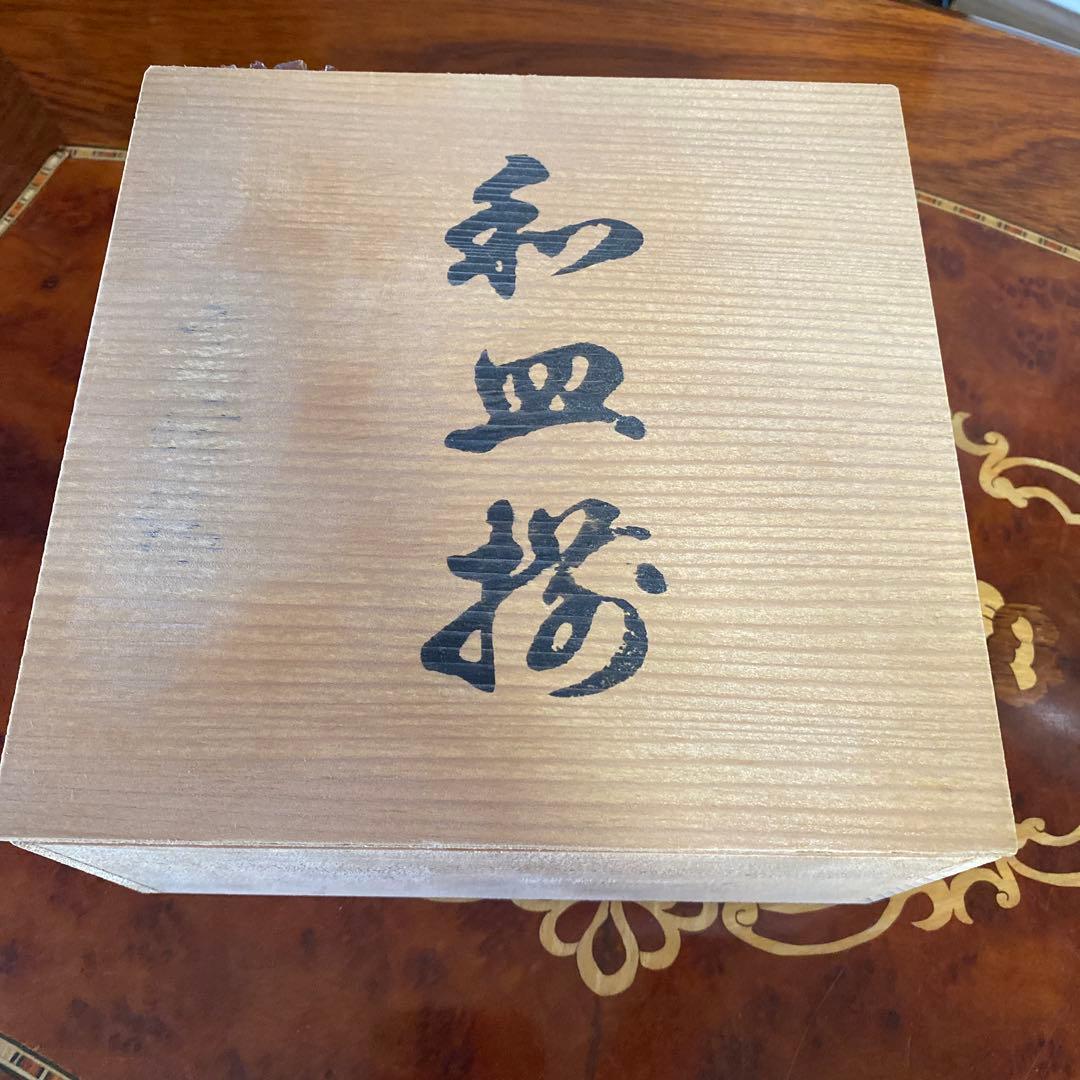 和皿揃